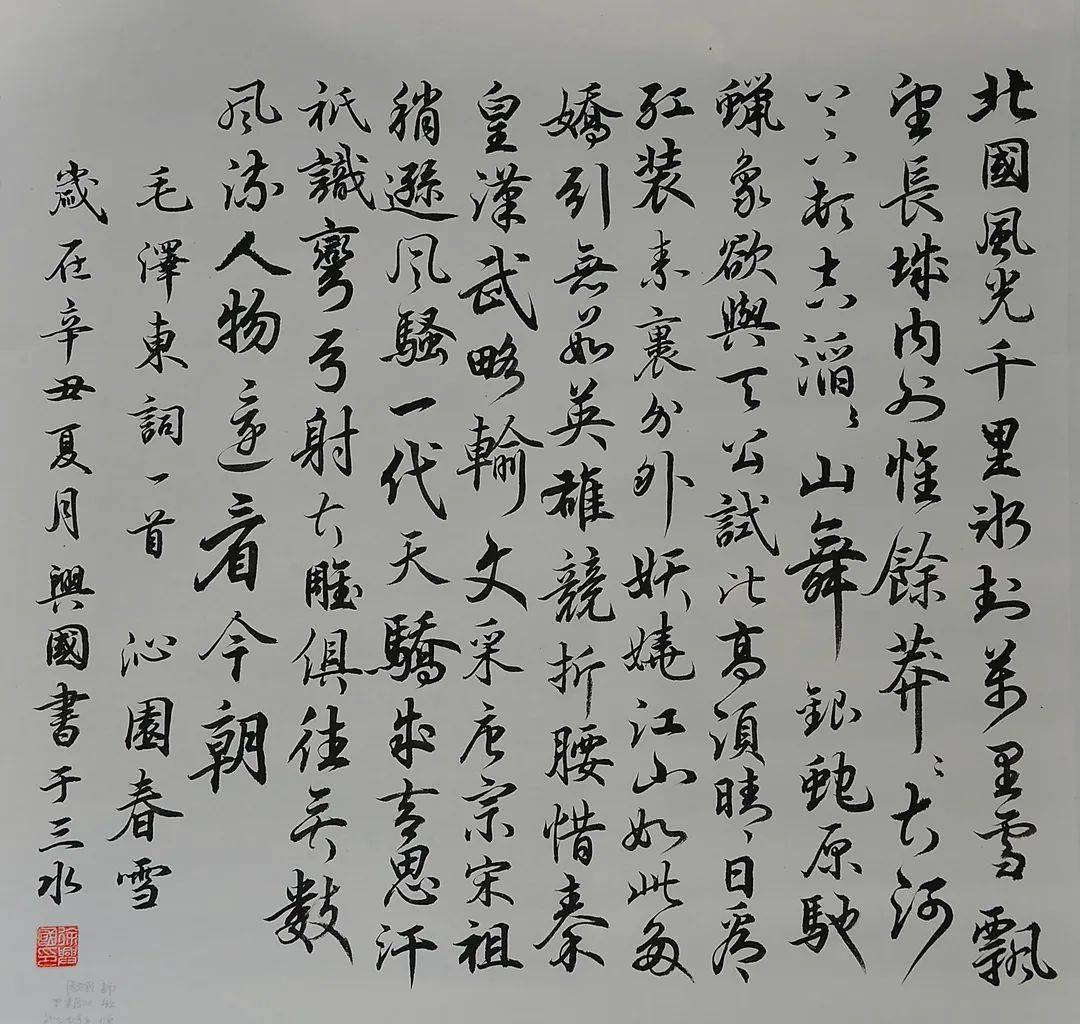 北國風光千里冰封萬里雪飄
望長城内外惟餘莽〻大河
上下頓失滔〻山舞銀蛇原馳
蠟象欲與天公試比高須晴日看
紅装素裹分外妖嬈江山如此多
嬌引無數英雄競折腰惜秦
皇漢武略輸文采唐宗宋祖
稍遜風騷一代天驕成吉思汗
祇識彎弓射大雕俱往矣數
風流人物還看今朝
毛澤東詞一首 沁園春雪
歲在辛丑夏月興國書于三水